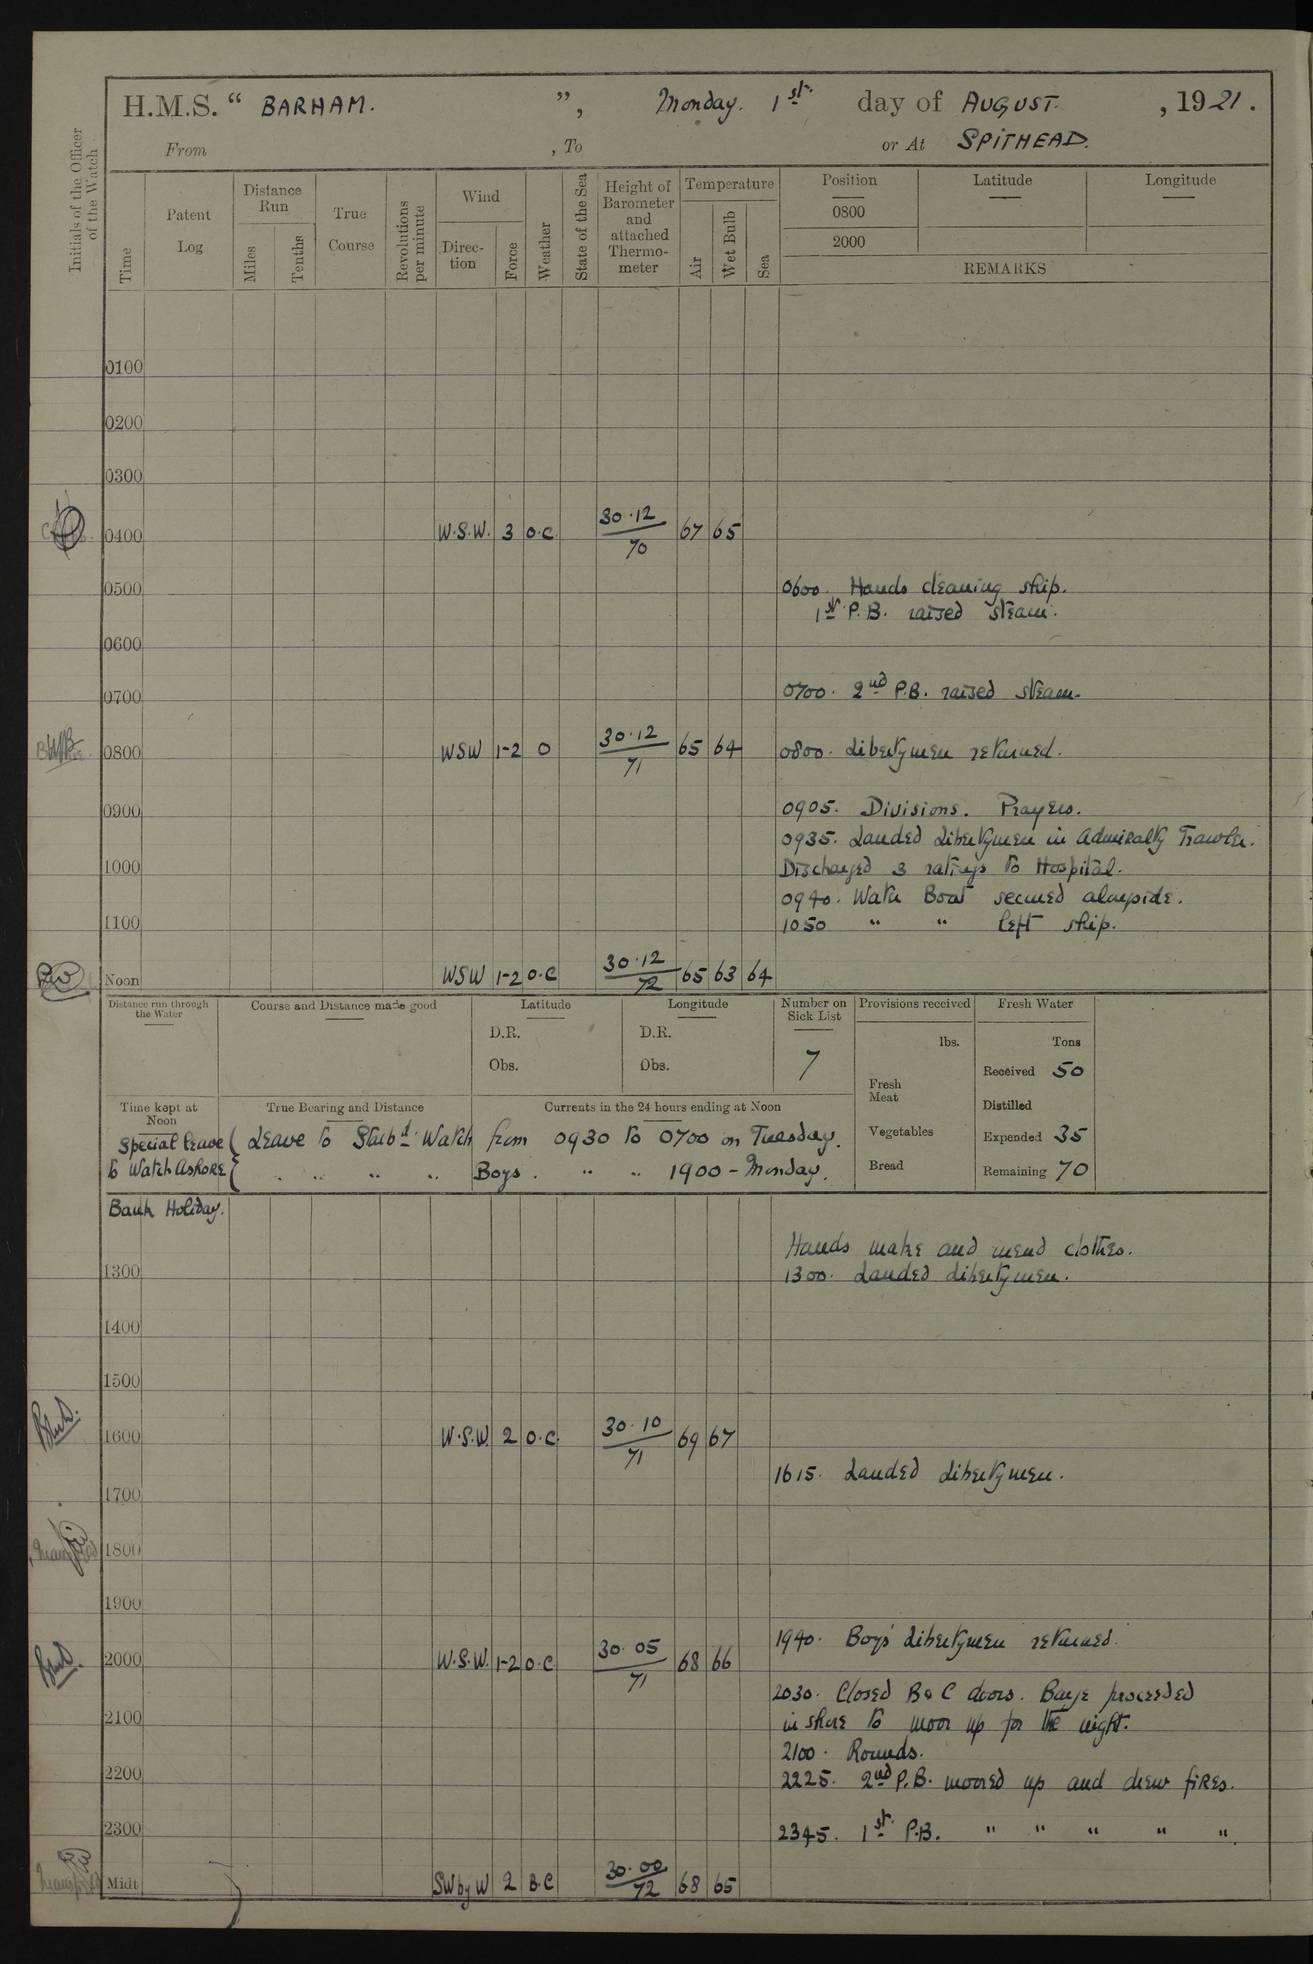 H.M.S. “ BARHAM. ”, Monday. 1st. day of AUGUST. , 1921.
From , To or At SPITHEAD.
Initials of the Officer of the Watch
Time
Patent Log
Distance Run
Miles
Tenths
True Course
Revolutions per minute
Wind
Direc-tion
Force
Weather
State of the Sea
Height of Barometer and attached Thermo-meter
Temperature
Air
Wet Bulb
Sea
Position Latitude Longitude
0800
2000
REMARKS
0100
0200
0300
0400 W.S.W. 3 O.C. 30.12/70 67 65
0500 0600 Hands cleaning ship.
1st P.B. raised steam.
0600
0700 0700. 2nd P.B. raised steam.
0800 WSW 1-2 O 30.12/71 65 64 0800. Libertymen returned.
0900 0905. Divisions. Prayers.
0935. Landed Libertymen in Admiralty Trawler.
1000 Discharged 3 ratings to Hospital.
0940. Water Boat secured alongside.
1100 1050 " " left ship.
Noon WSW 1-2 O.C 30.12/72 65 63 64
Distance run through the Water
Course and Distance made good
Latitude
D.R.
Obs.
Longitude
D.R.
Obs.
Number on Sick List
7
Provisions received
lbs.
Fresh Meat
Vegetables
Bread
Fresh Water
Tons
Received 50
Distilled
Expended 35
Remaining 70
Time kept at Noon
True Bearing and Distance
Currents in the 24 hours ending at Noon
Special leave ( Leave to Starbd. Watch from 0930 to 0700 on Tuesday.
to Watch Ashore { . .. .. .. Boys. .. .. 1900 - Monday.
Bank Holiday.
Hands make and mend clothes.
1300 1300. Landed Libertymen.
1400
1500
1600 W.S.W. 2 O.C. 30.10/71 69 67
1615. Landed Libertymen.
1700
1800
1900
1940. Boys' Libertymen returned.
2000 W.S.W. 1-2 O.C. 30.05/71 68 66
2030. Closed B & C doors. Barge proceeded
2100 in shore to moor up for the night.
2100. Rounds.
2200 2225. 2nd P.B. moored up and drew fires.
2300 2345. 1st. P.B. " " " " ".
Midt SW by W 2 B.C 30.00/72 68 65